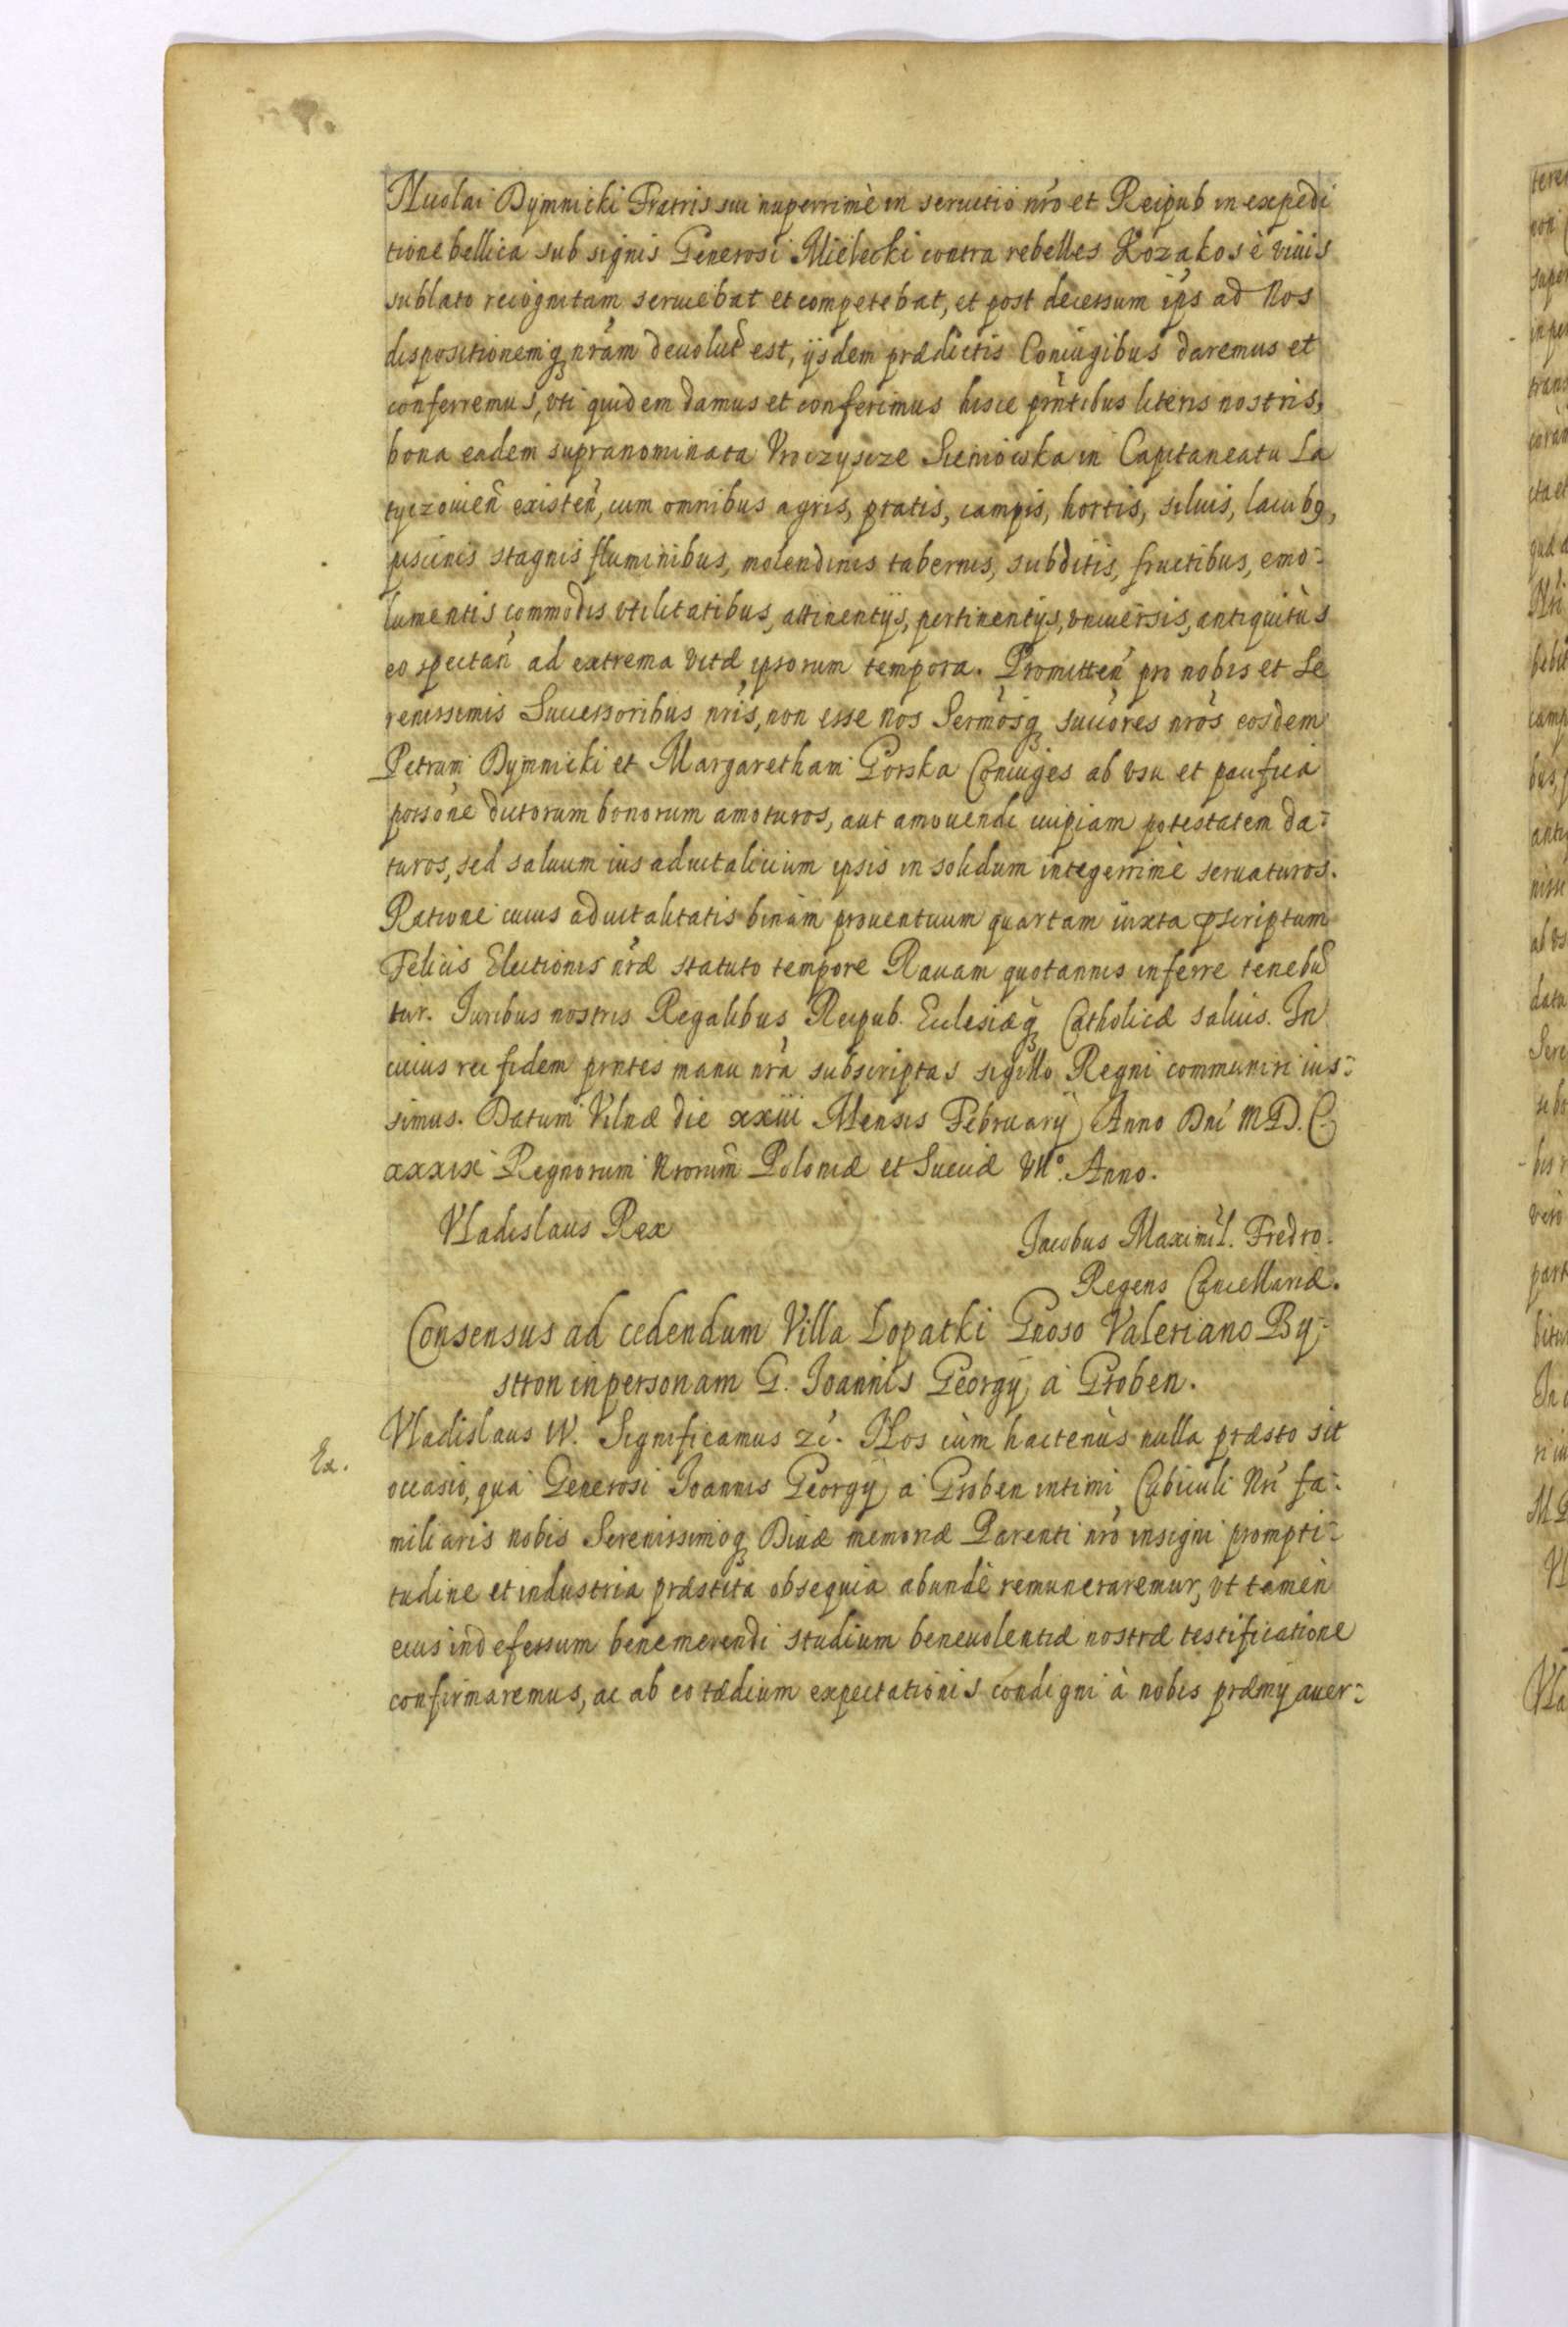 Nicolai Dymnicki Fratris sui nuperrimè in seruitio nrõ et Reipub in expedi
tione bellica sub signis Generosi Mielecki contra rebelles Kozakos è viuis
sublato recognitam seruiebat et competebat, et post decessum ips ad Nos
dispositionemq nrãm deuolut est, ijsdem prædictis Coniugibus daremus et
conferremus, vti quidem damus et conferimus hisce prñtibus literis nostris,
bona eadem supranominata Vroczyscze Sieniowska in Capitaneatu La
tyczouien existen, cum omnibus agris, pratis, campis, hortis, siluis, lacub9,
piscinis stagnis fluminibus, molendinis tabernis, subditis, fructibus, emo-
lumentis commodis vtilitatibus, attinentijs, pertinentijs, vniuersis, antiquitùs
eo spectan ad extrema vitæ ipsorum tempora. Promitten pro nobis et Se
renissimis Successoribus nris, non esse nos Sermosq succores nros eosdem
Petrum Dymnicki et Margaretham Gorska Coniuges ab vsu et paufica
possone dictorum bonorum amoturos, aut amouendi cuipiam potestatem da-
turos, sed saluum ius aduitalicium ipsis in solidum integerrimè seruaturos.
Ratione cuius aduitalitatis binam prouentuum quartam iuxta pscriptum
Felicis Electionis nræ statuto tempore Rauam quotannis inferre tenebũ
tur. Iuribus nostris Regalibus Reipub. Ecclesiæq Catholicæ saluis. In
cuius rei fidem prntes manu nra subscriptas sigillo Regni communiri ius-
simus. Datum Vilnæ die xxiii Mensis February Anno Dni M.D.C.
xxxix Regnorum Nrorum Poloniæ et Sueciæ VIIo. Anno.
Vladislaus Rex
Jacobus Maximil. Fredro.
Regens Cancellariæ.
Consensus ad cedendum Villa Lopatki Gnoso Valeriano By-
stron in personam G. Joannis Georgy à Groben.
Ex. Vladislaus IV. Significamus zc. Nos cùm hactenùs nulla præsto sit
occasio, qua Generosi Joannis Georgy à Groben intimi Cubiculi Nri fa-
miliaris nobis Serenissimoq Diuæ memoriæ Parenti nro insigni prompti-
tudine et industria præstita obsequia abundè remuneraremur, vt tamèn
eius indefessum benemerendi studium beneuolentiæ nostræ testificatione
confirmaremus, ac ab eo tædium expectationis condigni à nobis præmy auer-